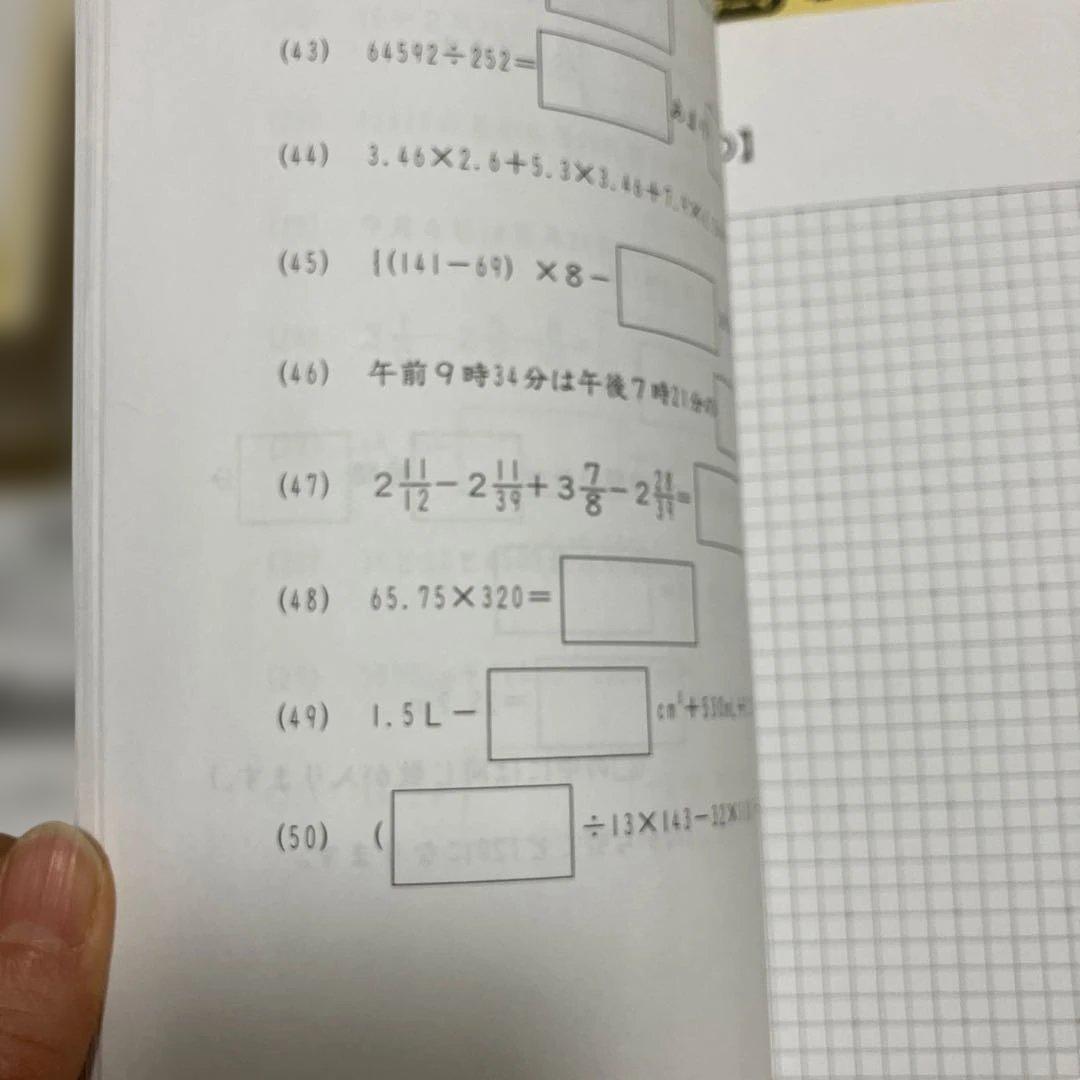 (43) 64592÷252= あまり
(44) 3.46×2.6+5.3×3.46+7.9×
(45) {(141-69)×8-
(46) 午前9時34分は午後7時21分の
(47) 2 11/12 - 2 11/39 + 3 7/8 - 2 28/39 =
(48) 65.75×320=
(49) 1.5L- cm³+550mL+
(50) ( ÷13×143-32×